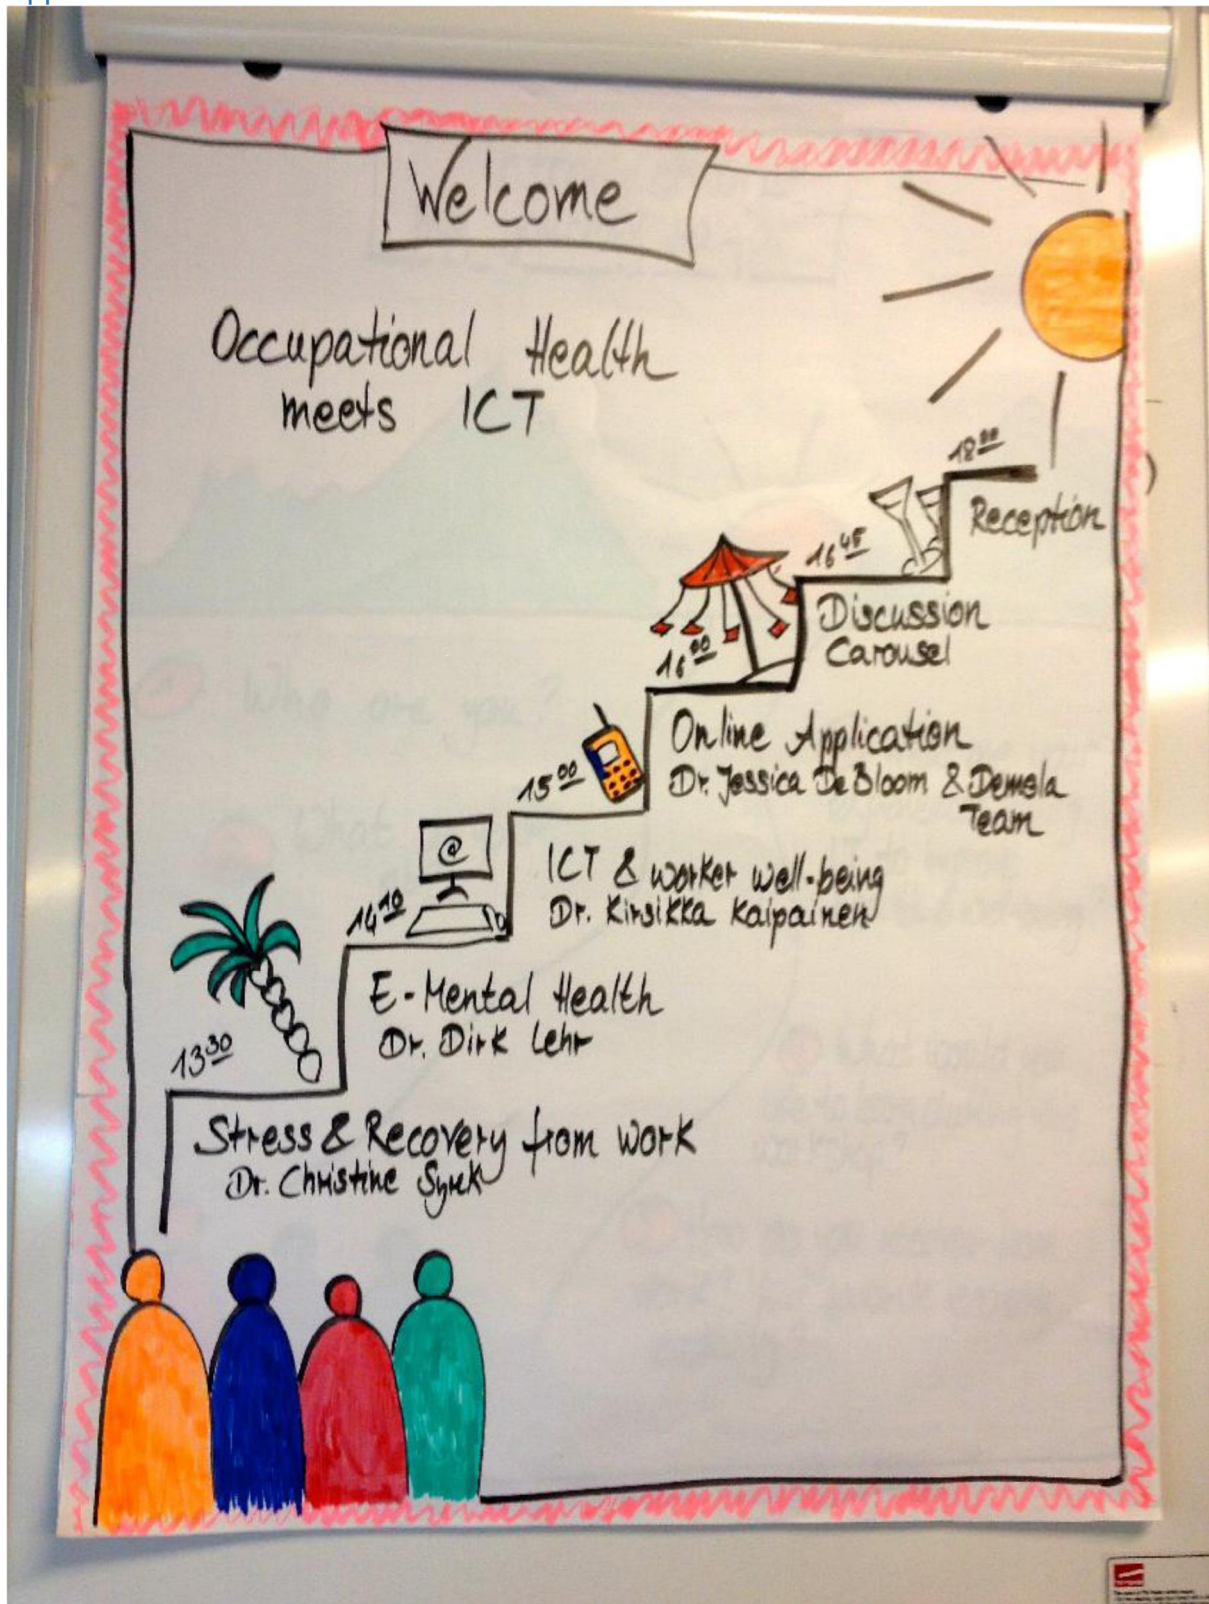 Welcome
Occupational Health
meets ICT
18⁰⁰
Reception
16⁴⁵
Discussion
Carousel
16⁰⁰
Online Application
Dr. Jessica De Bloom & Demola
Team
15⁰⁰
ICT & worker well-being
Dr. Kirsikka Kaipainen
14¹⁰
E-Mental Health
Dr. Dirk Lehr
13³⁰
Stress & Recovery from work
Dr. Christine Syrek
@
Who are you?